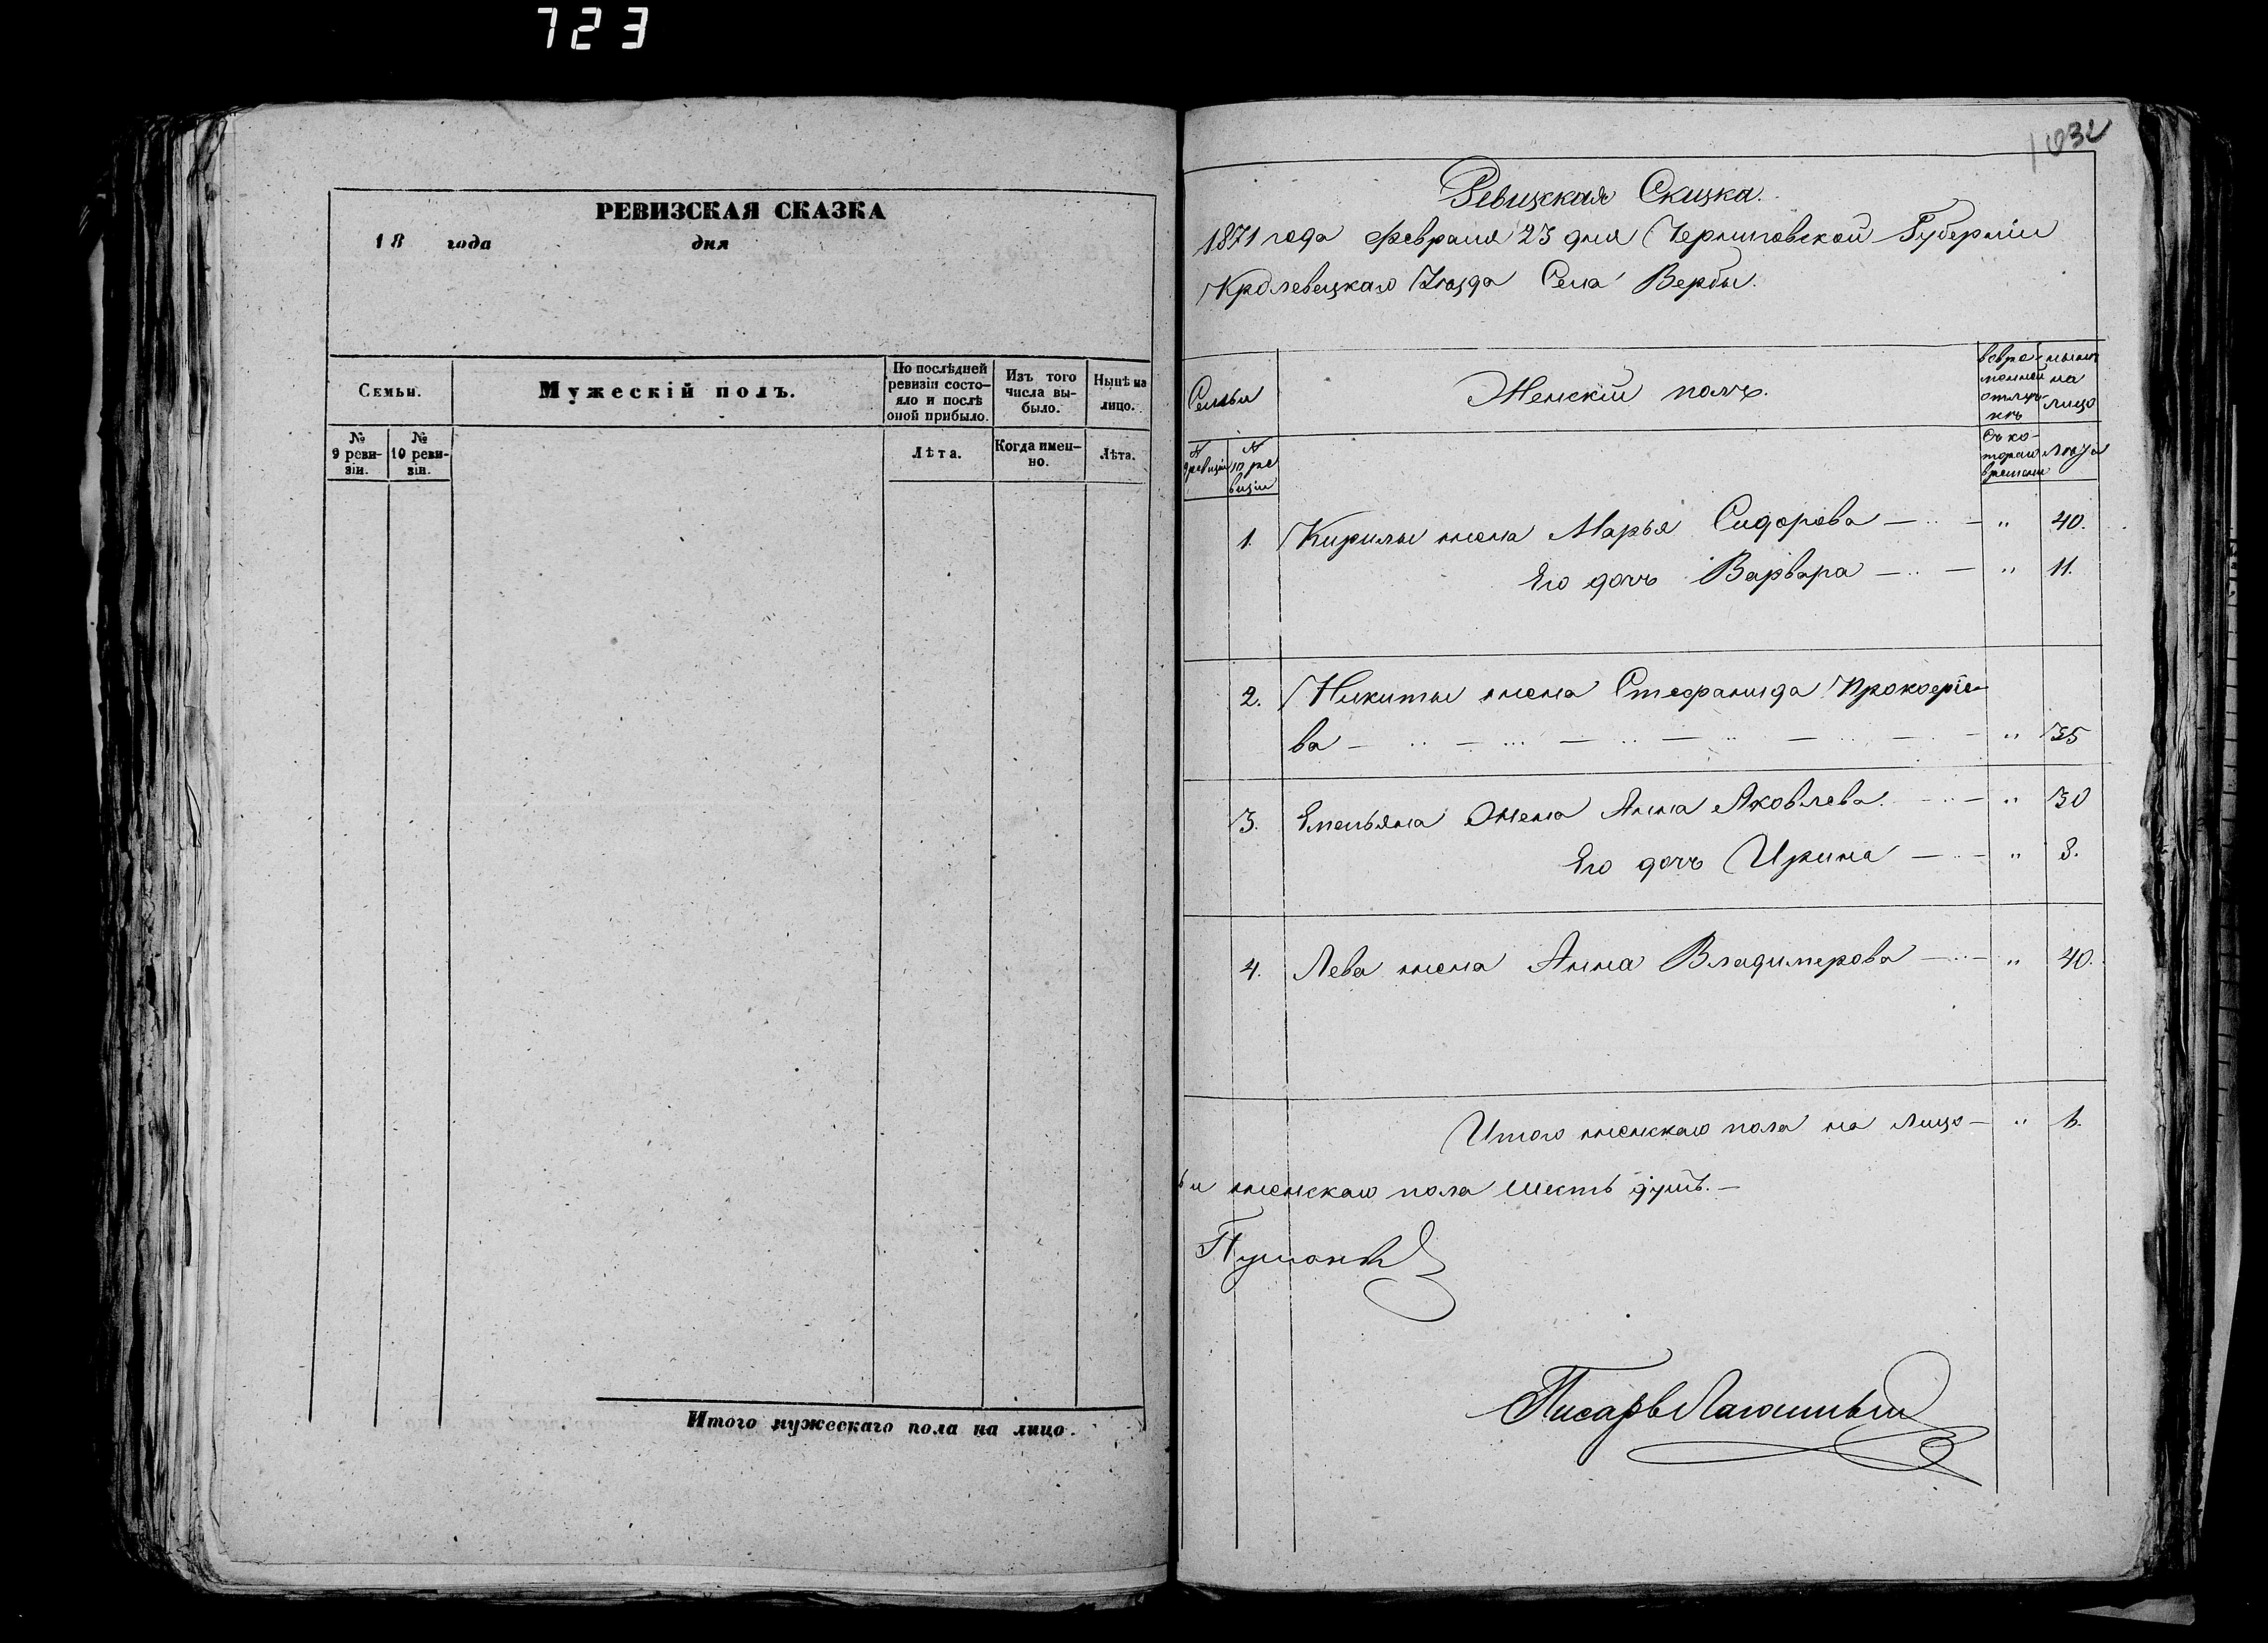 723
РЕВИЗСКАЯ СКАЗКА
18 года дня
Семьи.
Мужескій полъ.
По послѣдней ревизіи состо-
яло и послѣ оной прибыло.
Изъ того числа вы-
было.
Нынѣ на лицо.
№ 9 реви-
зіи.
№ 10 реви-
зіи.
Лѣта.
Когда имен-
но.
Лѣта.
Итого мужескаго пола на лицо.
1032
Ревизская Сказка.
1871 года февраля 23 дня Черниговской Губерніи
Кролевецкаго Уѣзда Села Вербы.
Семьи
Женскій полъ.
вовре-
менной
отлуч-
кѣ
нынѣ
на
лицо
№
9 ревизіи
№
10 ре
визіи
Съ ко-
тораго
времени
Лѣта
1. Кирилы жена Марья Сидорова — " 40.
Его дочь Варвара — " 11.
2. Никиты жена Стефанида Прокофіе-
ва — " 35
3. Емельяна Жена Анна Яковлева. — " 30
Его дочь Ирина — " 8.
4. Лева жена Анна Владимерова — " 40.
Итого женскаго пола на лицо — " 6.
и женскаго пола шесть душъ. —
Писарь